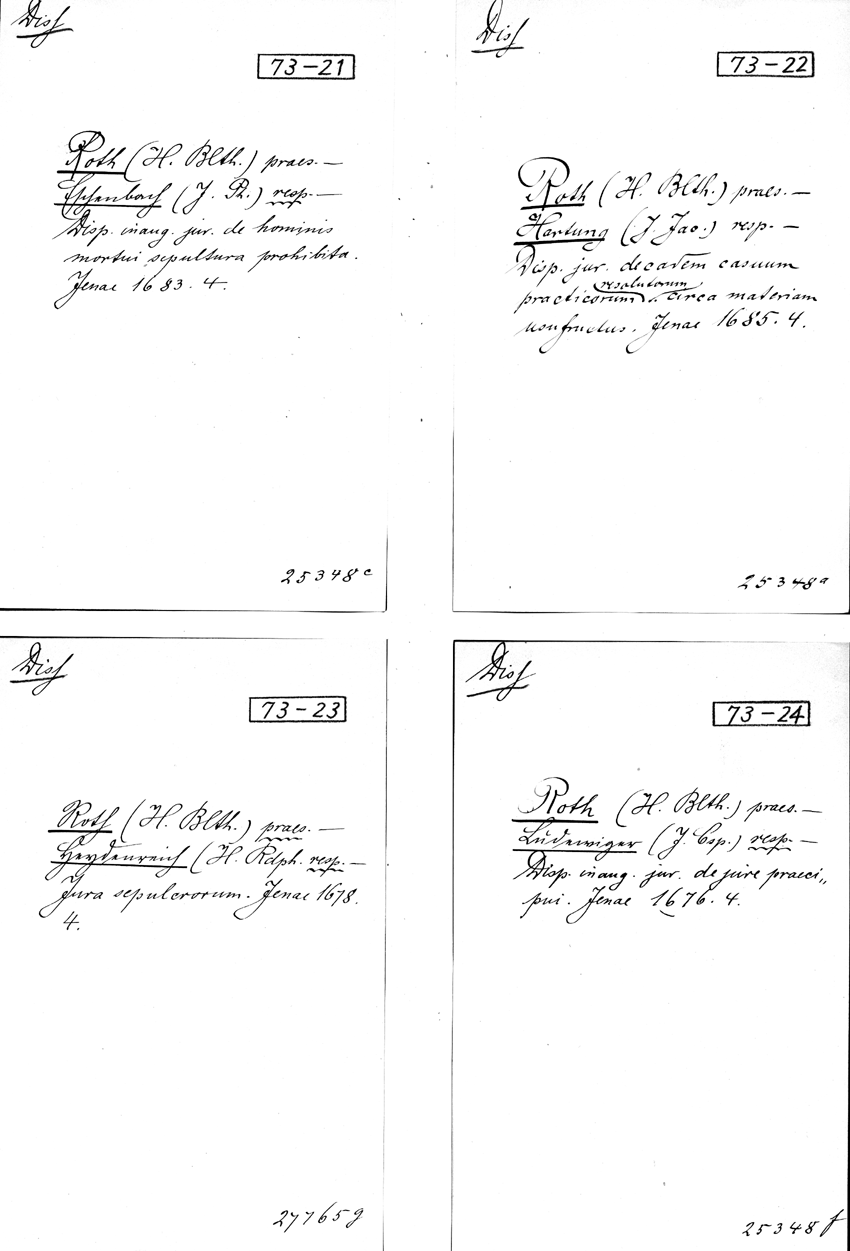 Diss
73-21
Roth (H. Blth.) praes. —
Eschenbach (J. Ph.) resp. —
Disp. inaug. jur. de hominis
mortui sepultura prohibita.
Jenae 1683. 4.
25348c
Diss
73-22
Roth (H. Blth.) praes. —
Hartung (J. Jac.) resp. —
Disp. jur. decadem casuum
resolutorum
practicorum circa materiam
usufructus. Jenae 1685. 4.
25348a
Diss
73-23
Roth (H. Blth.) praes. —
Heydenreich (H. Rdph. resp. —
Jura sepulcrorum. Jenae 1678.
4.
27765g
Diss
73-24
Roth (H. Blth.) praes. —
Ludewiger (J. Csp.) resp. —
Disp. inaug. jur. de jure praeci„
pui. Jenae 1676. 4.
25348f